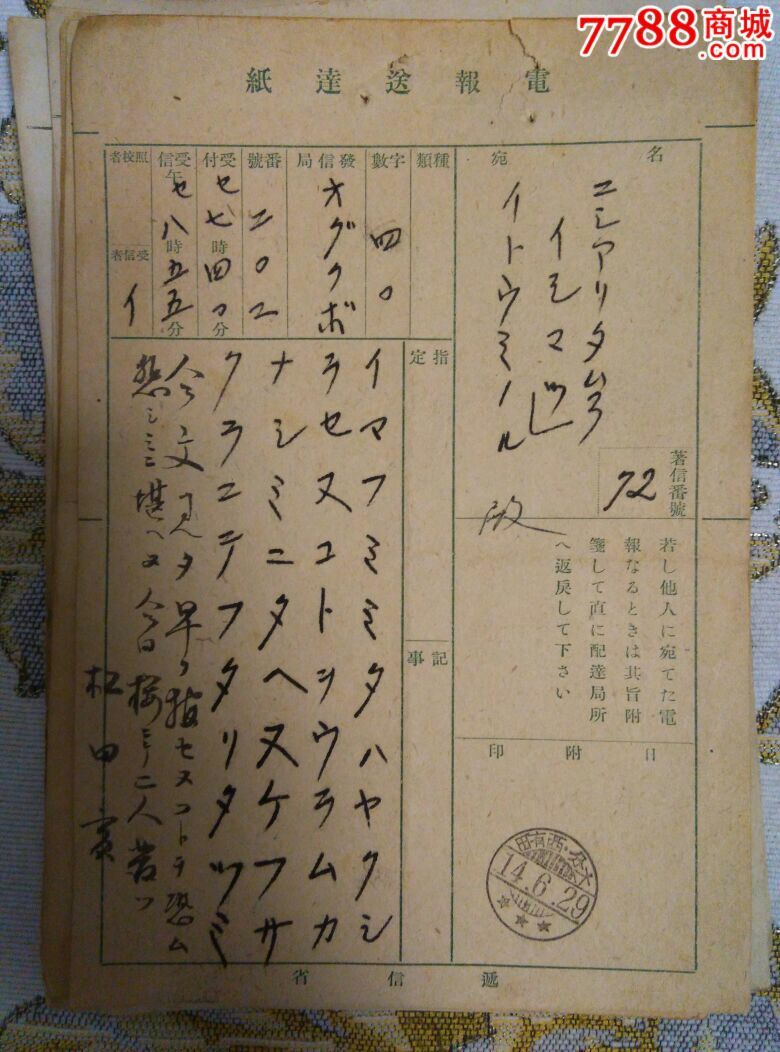 7788商城
.com
電報送達紙
名宛
ニシアリタムラ
イシマツ
イトウミノル
殿
著信番號
72
若し他人に宛てた電
報なるときは其旨附
箋して直に配達局所
へ返戻して下さい
日附印
西有田
14.6.29
種類
字數
四〇
發信局
オグクボ
番號
二〇二
受付
セ七時四〇分
受信
午セ八時五五分
照校者
受信者
イ
指定
記事
イマフミミタハヤクシ
ラセヌコトヲウラムカ
ナシミニタヘヌケフサ
クラニテフタリタツミ
今文見タ早ク報セヌコトヲ恐ム
悲シミニ堪ヘヌ今日桜ニテ二人
松田
遞信省